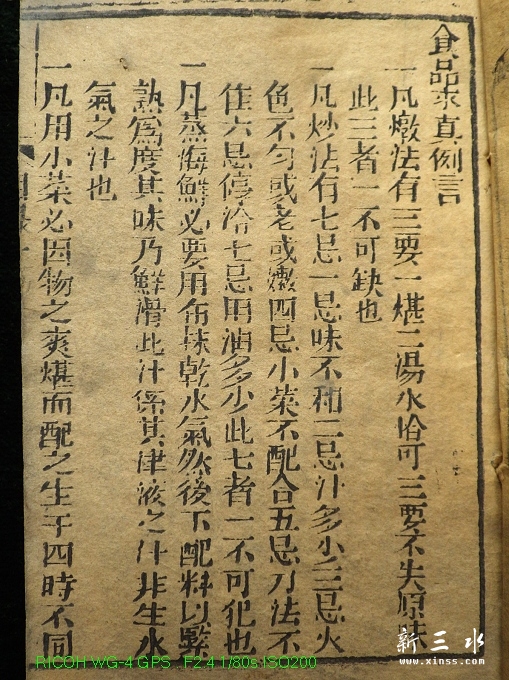 食品求真例言
一凡燉法有三要一煁二湯水恰可三要不失原味
此三者一不可缺也
一凡炒法有七忌一忌味不和二忌汁多少三忌火
色不匀或老或嫩四忌小菜不配合五忌刀法不
佳六忌停冷七忌用油多少此七者一不可犯也
一凡蒸海鮮必要用布抹乾水氣然後下配料以
熟為度其味乃鮮滑此汁係其津液之汁非生水
氣之汁也
一凡用小菜必因物之爽煁而配之生于四時不同
新三水
www.xinss.com
RICOH WG-4 GPS F2.4 1/80s ISO200